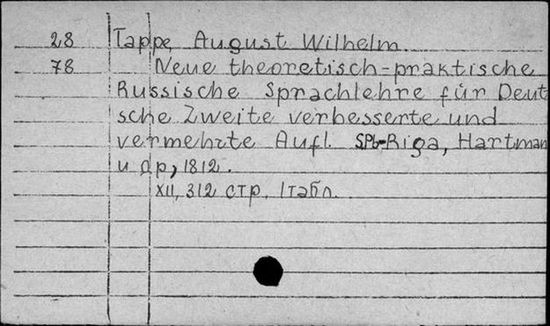 28 Tappe, August Wilhelm.
78 Neue theoretisch-praktische
Russische Sprachlehre für Deut
sche Zweite verbesserte und
vermehrte Aufl. SPb-Riga, Hartman
и др, 1812.
XII, 312 стр, 1 табл.